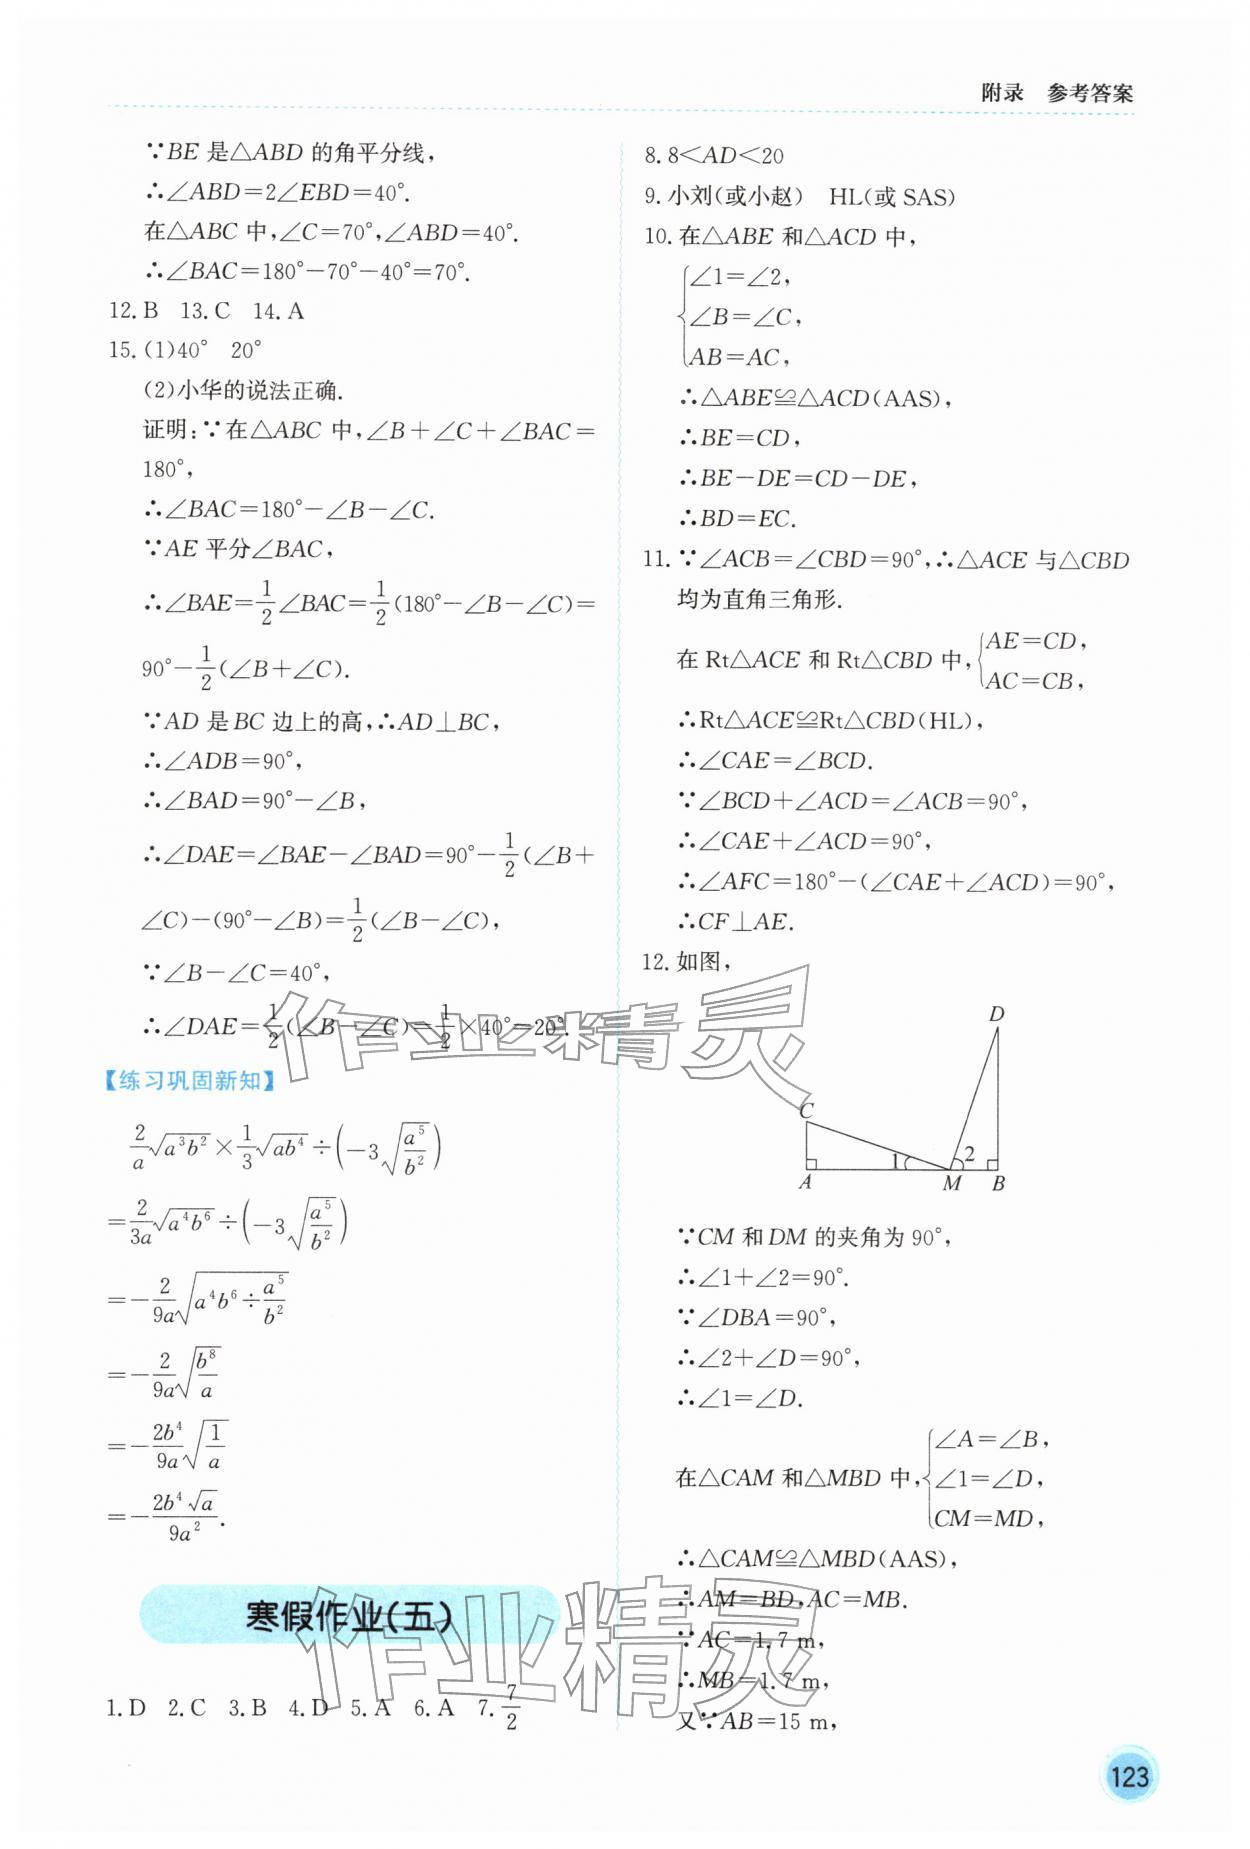 附录 参考答案
∵BE 是△ABD 的角平分线，
∴∠ABD=2∠EBD=40°.
在△ABC 中，∠C=70°，∠ABD=40°.
∴∠BAC=180°-70°-40°=70°.
12. B 13. C 14. A
15. (1)40° 20°
(2)小华的说法正确.
证明：∵在△ABC 中，∠B+∠C+∠BAC=
180°，
∴∠BAC=180°-∠B-∠C.
∵AE 平分∠BAC，
∴∠BAE=1/2∠BAC=1/2(180°-∠B-∠C)=
90°-1/2(∠B+∠C).
∵AD 是 BC 边上的高，∴AD⊥BC，
∴∠ADB=90°，
∴∠BAD=90°-∠B，
∴∠DAE=∠BAE-∠BAD=90°-1/2(∠B+
∠C)-(90°-∠B)=1/2(∠B-∠C)，
∵∠B-∠C=40°，
∴∠DAE=1/2(∠B-∠C)=1/2×40°=20°.
【练习巩固新知】
2/a√(a³b²)×1/3√(ab⁴)÷(-3√(a⁵/b²))
=2/3a√(a⁴b⁶)÷(-3√(a⁵/b²))
=-2/9a√(a⁴b⁶÷a⁵/b²)
=-2/9a√(b⁸/a)
=-2b⁴/9a√(1/a)
=-2b⁴√a/9a².
寒假作业(五)
1. D 2. C 3. B 4. D 5. A 6. A 7. 7/2
8. 8<AD<20
9. 小刘(或小赵) HL(或 SAS)
10. 在△ABE 和△ACD 中，
∠1=∠2，
∠B=∠C，
AB=AC，
∴△ABE≌△ACD(AAS)，
∴BE=CD，
∴BE-DE=CD-DE，
∴BD=EC.
11. ∵∠ACB=∠CBD=90°，∴△ACE 与△CBD
均为直角三角形.
在 Rt△ACE 和 Rt△CBD 中，{AE=CD，
AC=CB，
∴Rt△ACE≌Rt△CBD(HL)，
∴∠CAE=∠BCD.
∵∠BCD+∠ACD=∠ACB=90°，
∴∠CAE+∠ACD=90°，
∴∠AFC=180°-(∠CAE+∠ACD)=90°，
∴CF⊥AE.
12. 如图，
D
C
1 2
A M B
∵CM 和 DM 的夹角为 90°，
∴∠1+∠2=90°.
∵∠DBA=90°，
∴∠2+∠D=90°，
∴∠1=∠D.
∠A=∠B，
在△CAM 和△MBD 中，{∠1=∠D，
CM=MD，
∴△CAM≌△MBD(AAS)，
∴AM=BD，AC=MB.
∵AC=1.7 m，
∴MB=1.7 m，
又∵AB=15 m，
作业精灵
作业精灵
123